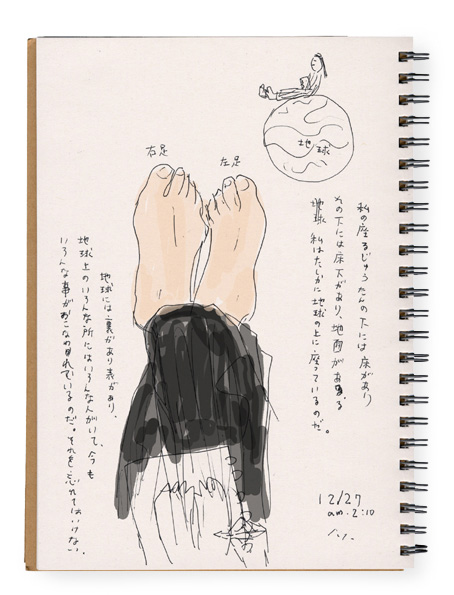 地球
右足
左足
私の座るじゅうたんの下には床があり
その下には床下があり、地面がある
地球 私はたしかに地球の上に座っているのだ。
地球には裏があり表があり、
地球上のいろんな所にはいろんな人がいて、今も
いろんな事がおこなわれているのだ。それを忘れてはいけない。
12/27
am.2:10